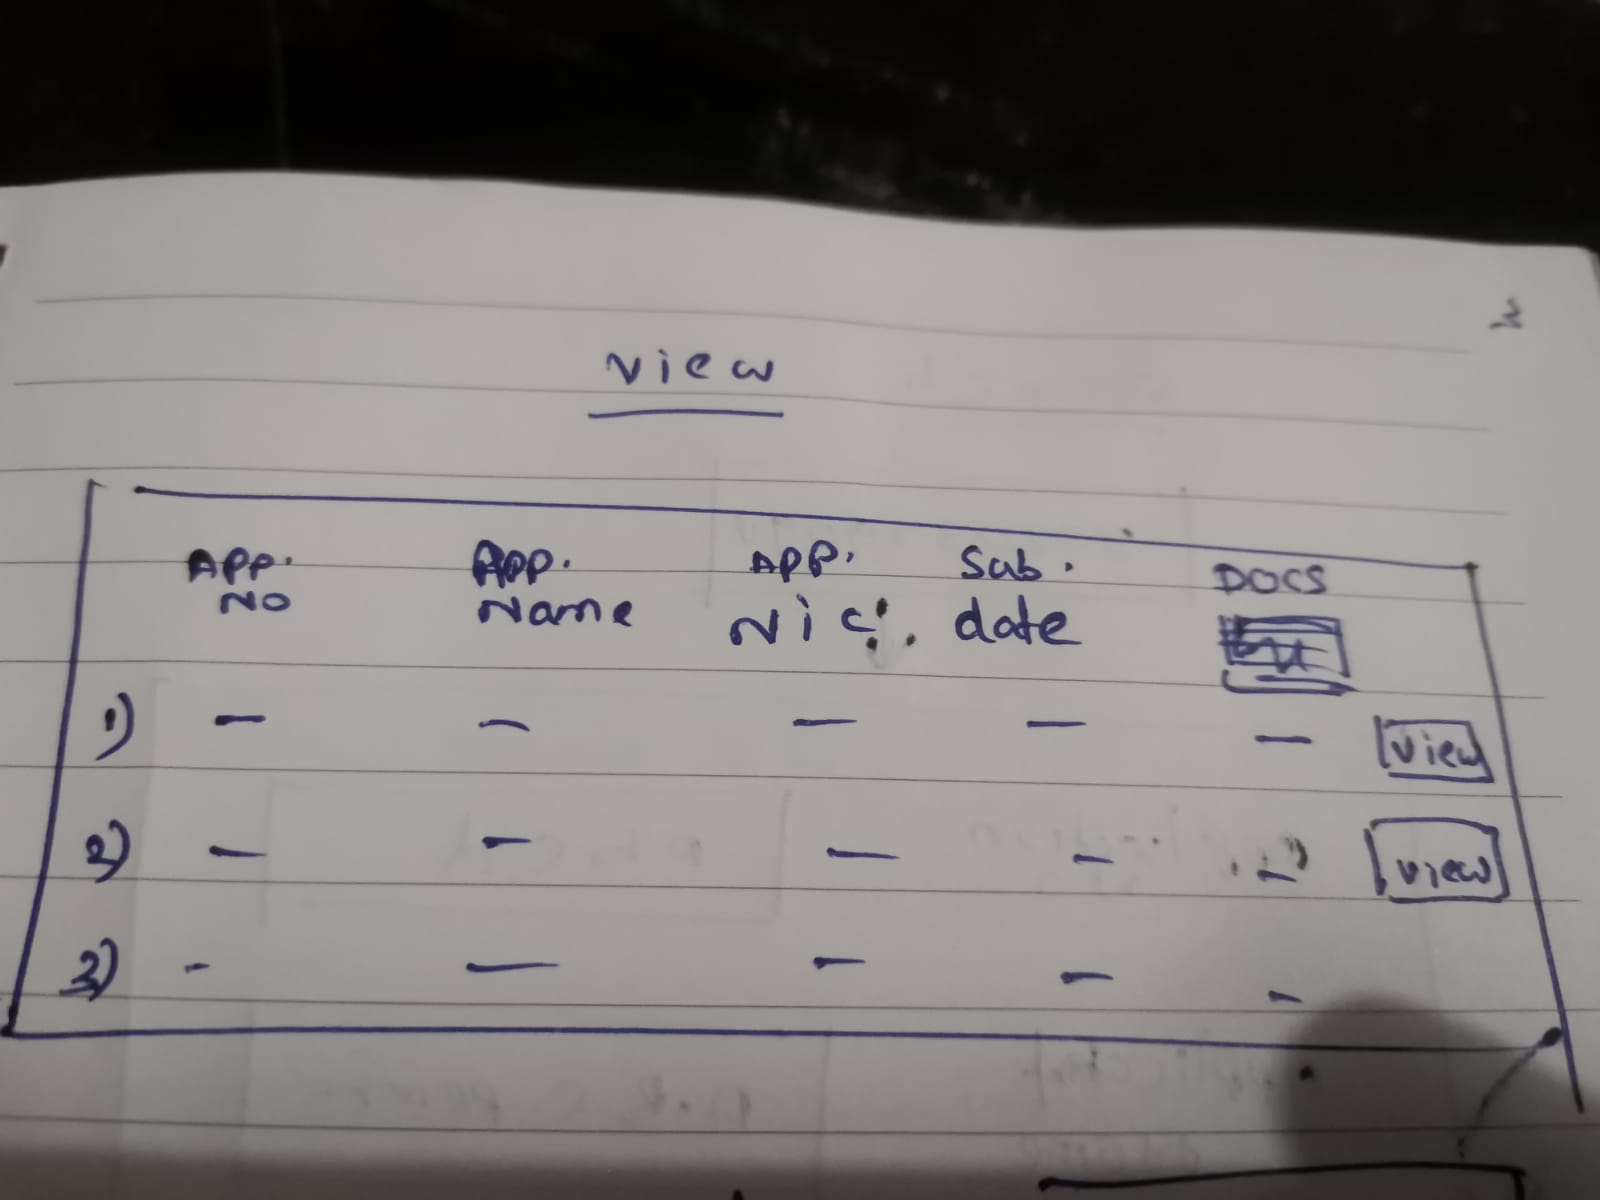 view
APP. NO App. Name APP. Nic. Sub. date DOCS
1) — — — — — view
2) — — — — — view
3) - — — — -